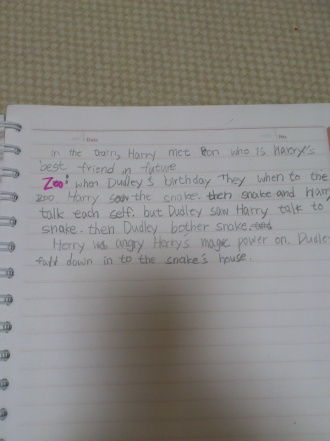 in the train, Harry met Ron who is harry's
best friend in future
Zoo: when Dudley's birthday They when to the
zoo. Harry saw the snake. then snake and Harry
talk each self. but Dudley saw Harry talk to
snake. then Dudley bother snake.
Herry was angry Harry's magic power on. Dudley
fall down in to the snake's house.